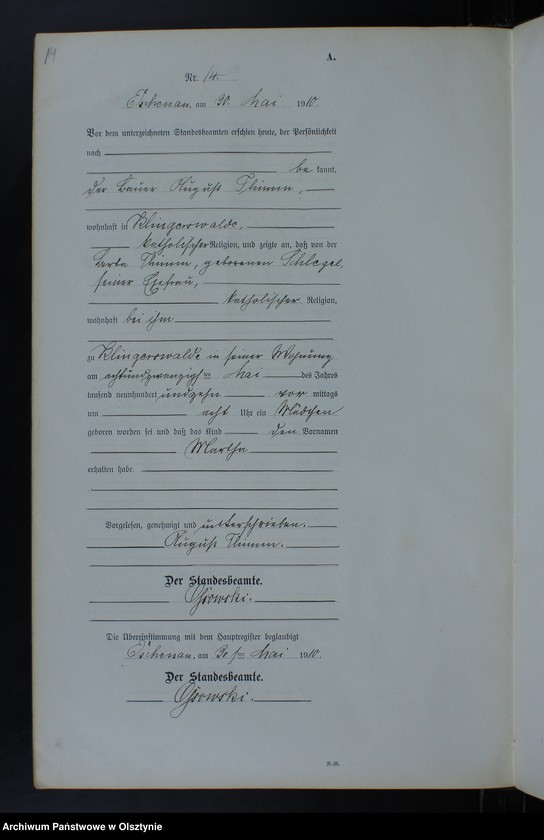 14
A.
Nr. 14.
Tschenau, am 30. Mai 1910.
Vor dem unterzeichneten Standesbeamten erschien heute, der Persönlichkeit
nach
be kannt,
der Bauer August Thimm,
wohnhaft in Klingerswalde,
katholischer Religion, und zeigte an, daß von der
Thimm, geborenen Schlegel,
seiner Ehefrau,
katholischer Religion,
wohnhaft bei ihm
zu Klingerswalde in seiner Wohnung
am achtundzwanzigsten Mai des Jahres
tausend neunhundert undzehn vor mittags
um acht Uhr ein Mädchen
geboren worden sei und daß das Kind den Vornamen
Martha
erhalten habe.
Vorgelesen, genehmigt und unterschrieben.
August Thimm.
Der Standesbeamte.
Osowski.
Die Übereinstimmung mit dem Hauptregister beglaubigt
Tschenau, am 30 ten Mai 1910.
Der Standesbeamte.
Osowski.
Archiwum Państwowe w Olsztynie